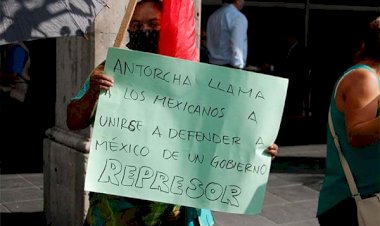 ANTORCHA LLAMA
A LOS MEXICANOS A
UNIRSE A DEFENDER A
MÉXICO DE UN GOBIERNO
REPRESOR